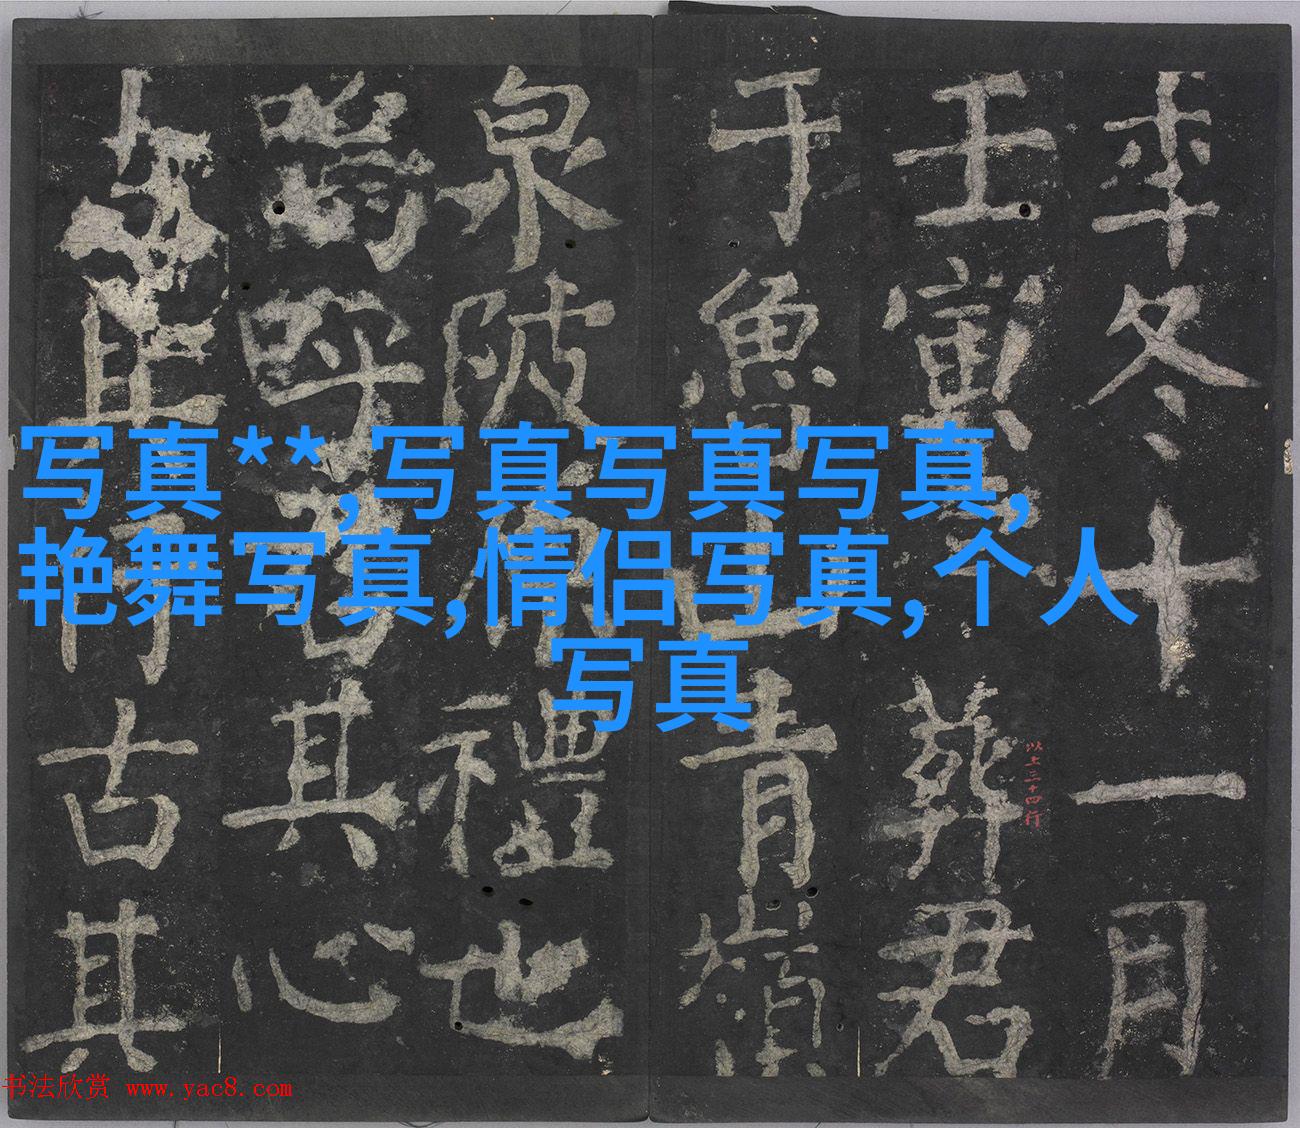 年冬十一月
壬寅葬君
于魯山青嶺
泉陂原禮也
嗚呼君其心
行古其
以上三十四行
写真**,写真写真写真,
艳舞写真,情侣写真,个人
写真
书法欣赏 www.yac8.com